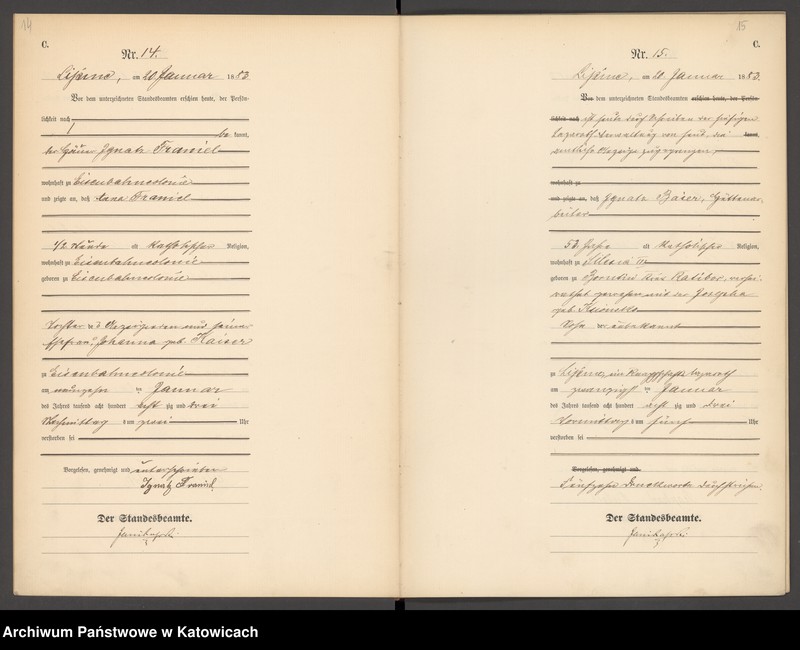 14
C.
Nr. 14.
am 20 Januar 1883
Vor dem unterzeichneten Standesbeamten erschien heute, der Persön-
lichkeit nach
be kannt,
der Ignatz Franiel
wohnhaft zu Eisenbahncolonie
und zeigte an, daß Franiel
1/2 Stunde alt katholischer Religion,
wohnhaft zu Eisenbahncolonie
geboren zu Eisenbahncolonie
Tochter des Anzeigenden und seiner
Ehefrau Johanna geb. Kaiser
zu Eisenbahncolonie
am neunzehnten Januar
des Jahres tausend acht hundert acht zig und drei
Nachmittags um zwei Uhr
verstorben sei
Vorgelesen, genehmigt und unterschrieben
Ignatz Franiel
Der Standesbeamte.
15
C.
Nr. 15.
am 20 Januar 1883.
Vor dem unterzeichneten Standesbeamten erschien heute, der Persön-
lichkeit nach ist heute durch Schreiben der hiesigen
Lazareth Verwaltung von heut, die kannt,
amtliche Anzeige zugegangen,
wohnhaft zu
und zeigte an, daß Ignatz Baier, Hüttenar-
beiter
Jahre alt katholischer Religion,
wohnhaft zu
geboren zu Kreis Ratibor, verhei-
rathet gewesen mit der Josepha
geb.
Sohn der unbekannt
zu im Knappschafts Lazareth
am zwanzigsten Januar
des Jahres tausend acht hundert acht zig und drei
Vormittags um fünf Uhr
verstorben sei
Vorgelesen, genehmigt und
Fünfzehn Druckworte durchstrichen.
Der Standesbeamte.
Archiwum Państwowe w Katowicach